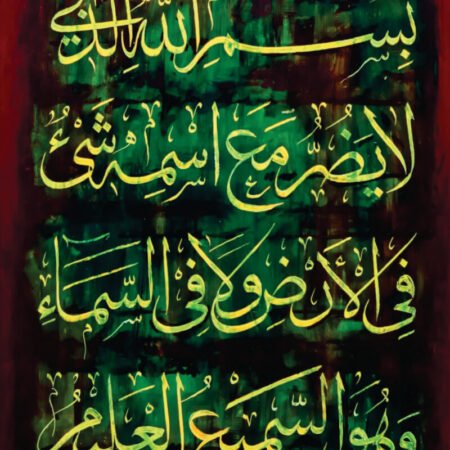 بِسْمِ اللّٰهِ الَّذِي
لَا يَضُرُّ مَعَ اسْمِهِ شَيْءٌ
فِي الْأَرْضِ وَلَا فِي السَّمَاءِ
وَهُوَ السَّمِيعُ الْعَلِيمُ